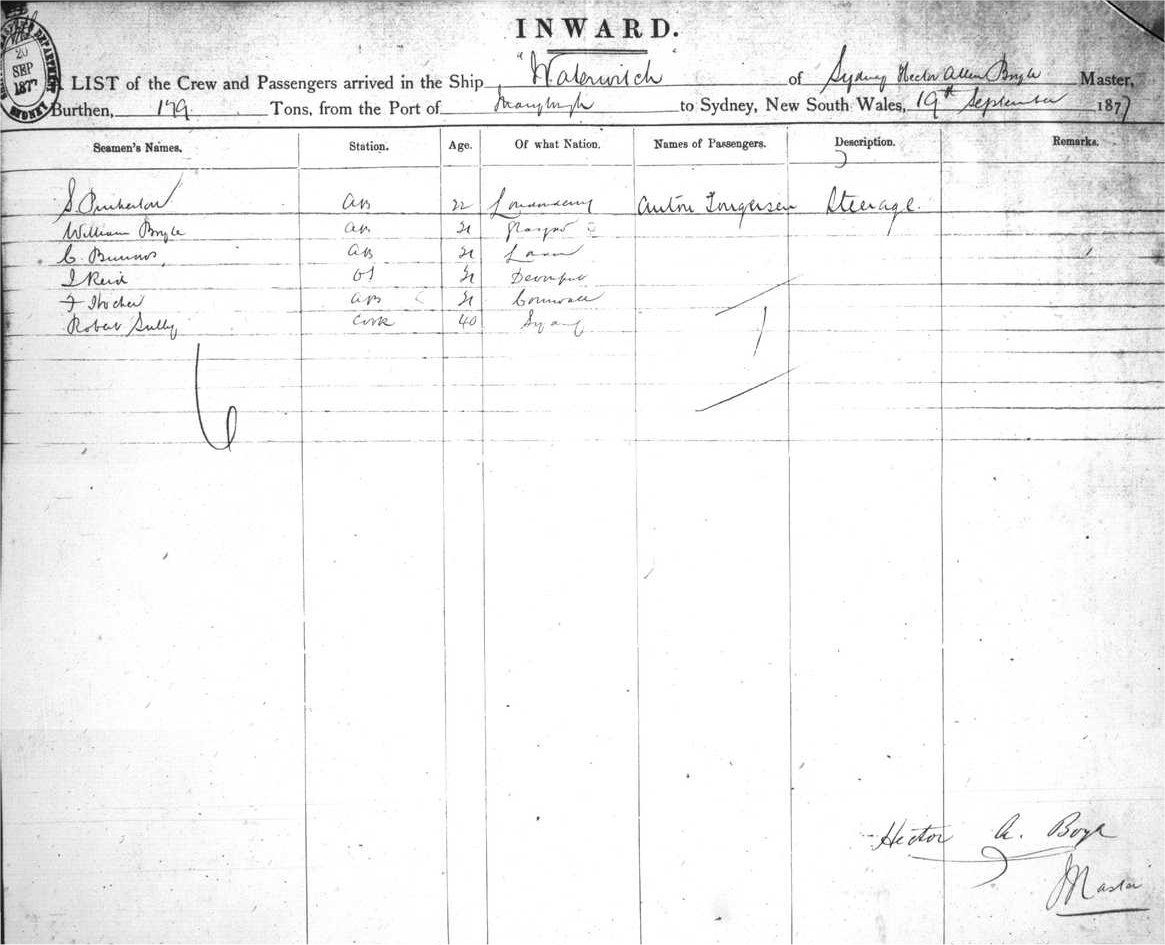 INWARD.
20
SEP
187
LIST of the Crew and Passengers arrived in the Ship "Waterwitch" of Sydney Hector Allen Boyle Master,
Burthen, 179 Tons, from the Port of to Sydney, New South Wales, 19th September 1877
Seamen's Names. Station. Age. Of what Nation. Names of Passengers. Description. Remarks.
S Pinkerton AB 22 Londonderry Anton Torgersen Steerage
William Boyle AB 21
C AB 21
J Reid OS 21 Devonport
F AB 21 Cornwall
Robert Sully Cook 40 Sydney
1
6
Hector A. Boyle
Master